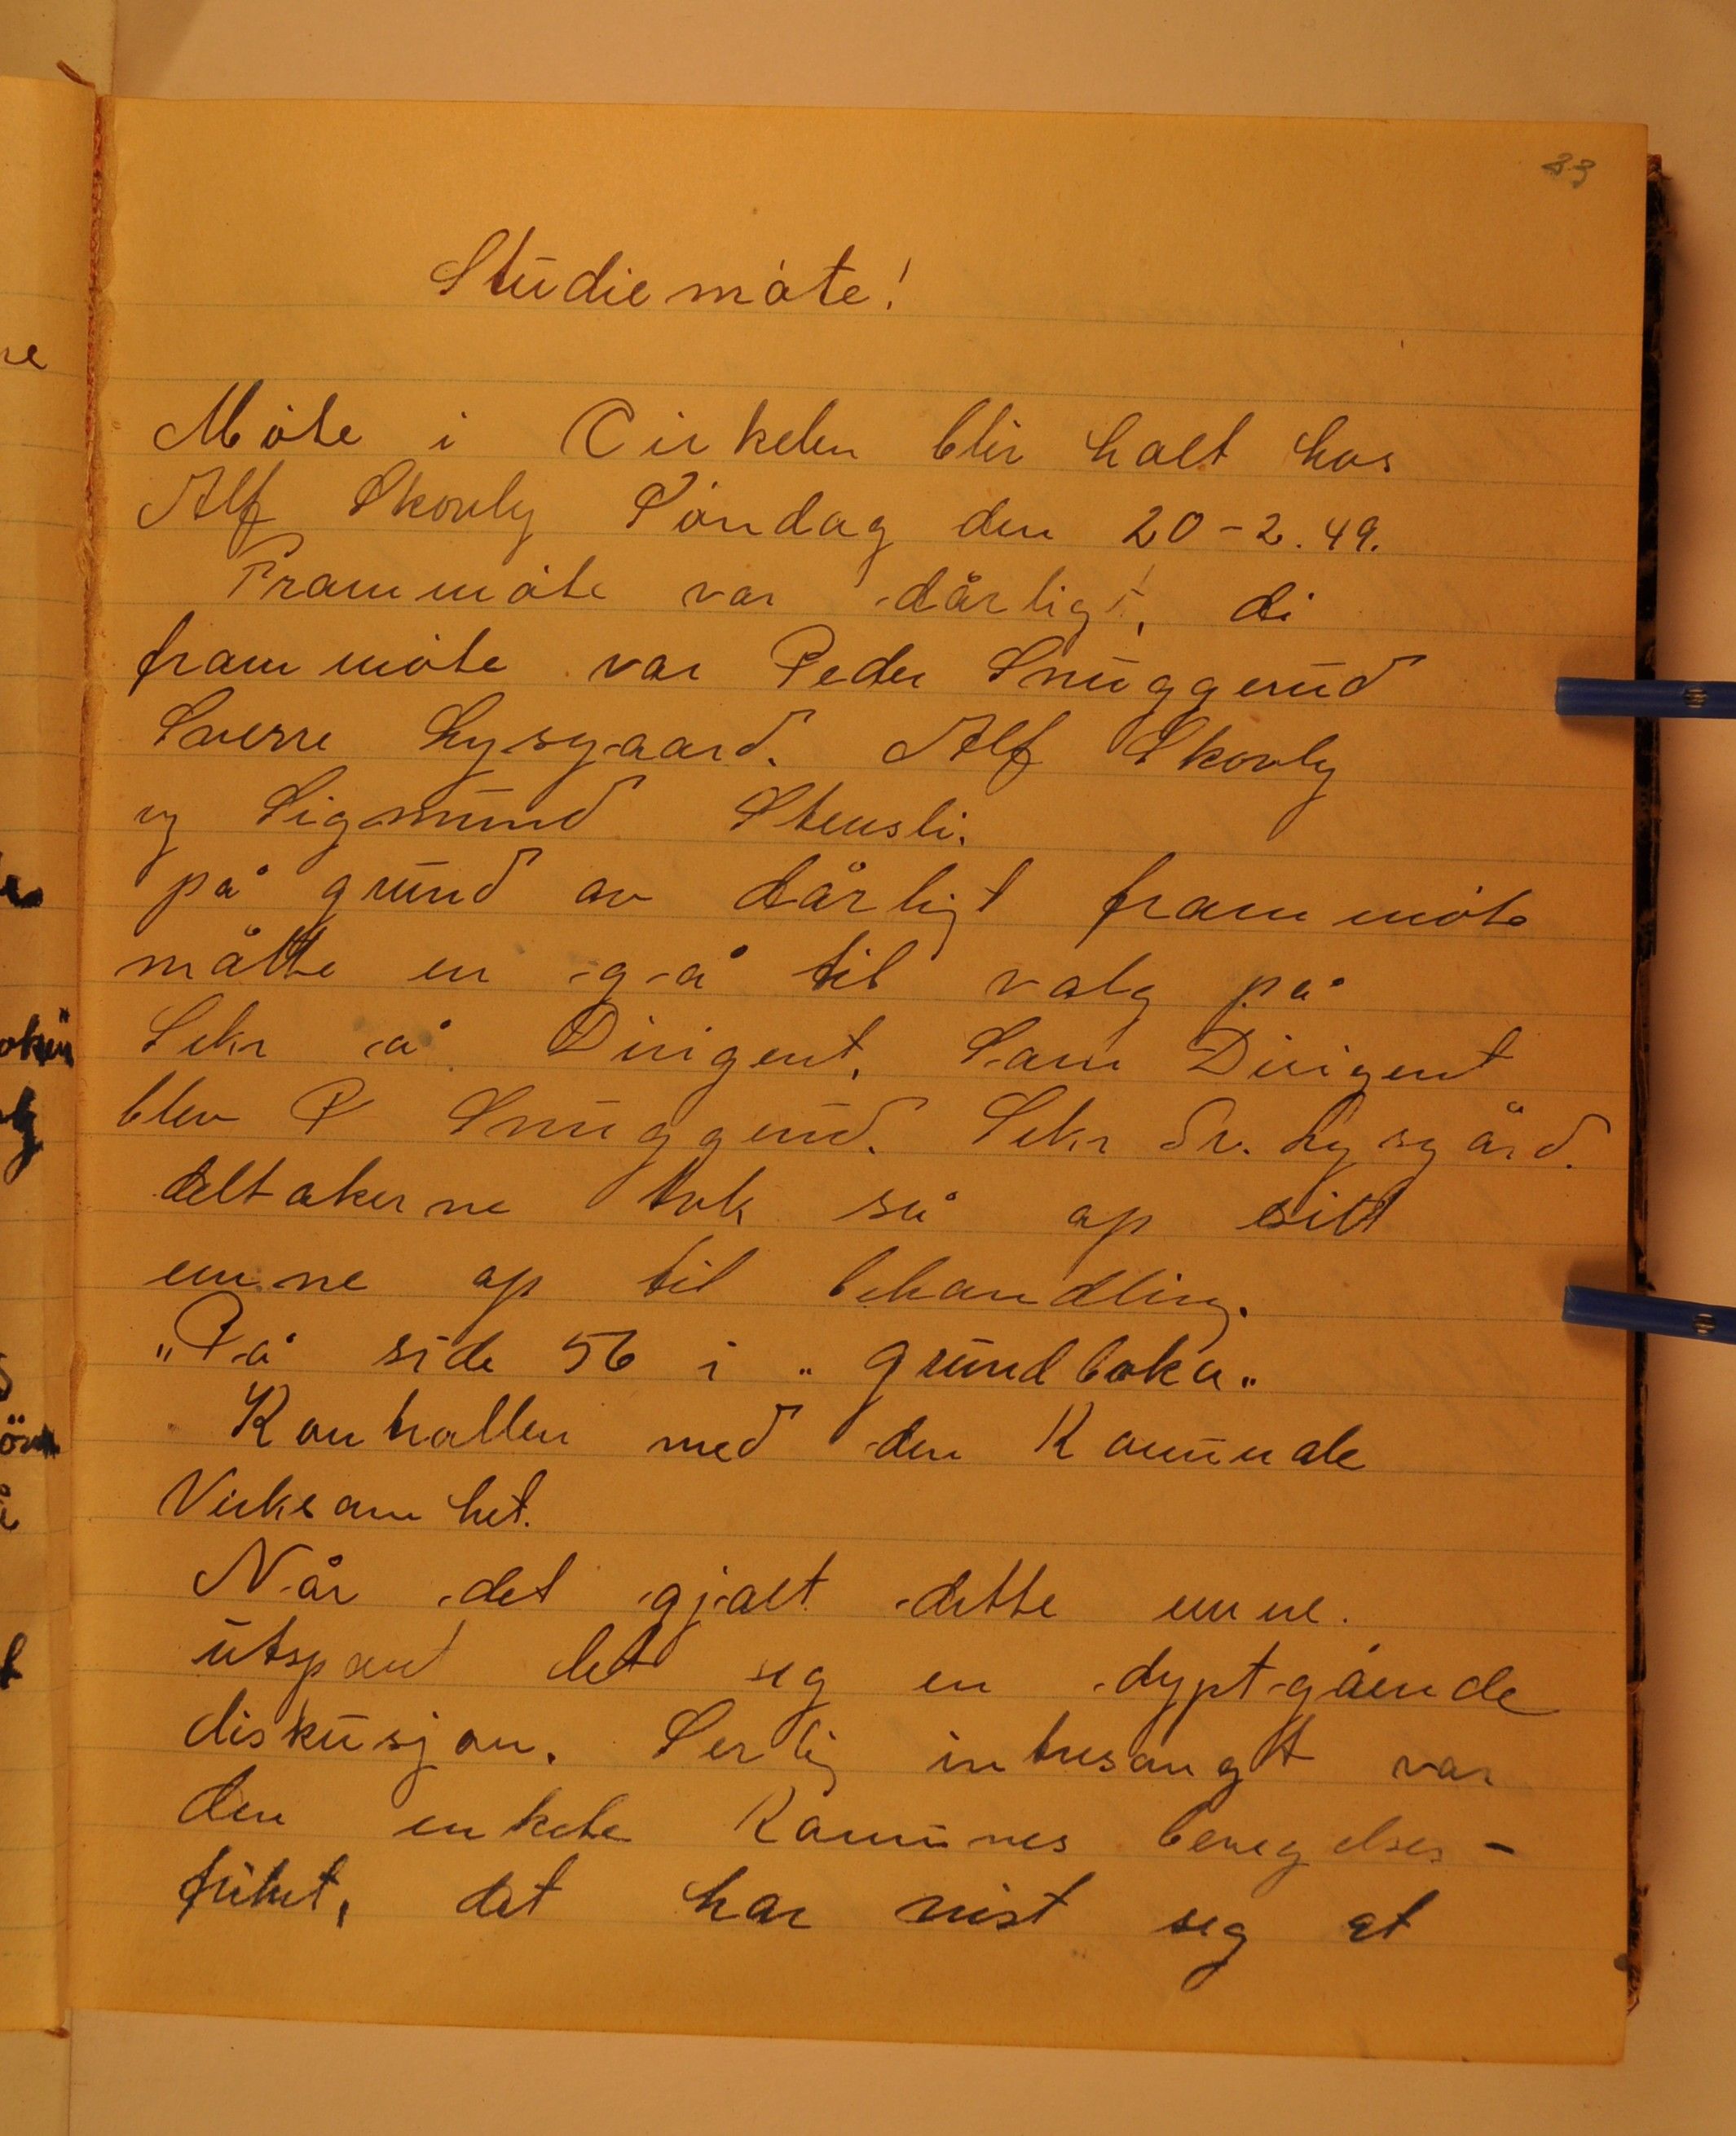 33
Studiemöte!
Möte i Cirkelen blir halt hos
Alf Skovly Söndag den 20-2.49.
Frammöte var dårligt, di
frammöte var Peder Snuggerud
Sverre Lysgaard. Alf Skovly
og Sigmund Stensli.
på grund av dårligt frammöte
måtte en gå til valg på
Sekr å Dirigent. Som Dirigent
blev P Snuggerud. Sekr Sv. Lysgård.
deltakerne tok så op sitt
emne op til behandling.
"På side 56 i "grundboka"
Kontrollen med den Komunale
Virksomhet.
Når det gjalt dette emne.
utspant det seg en dyptgående
diskusjon. Serlig intresangt var
den enkete Komunes bevegelses-
frihet, det har vist seg at